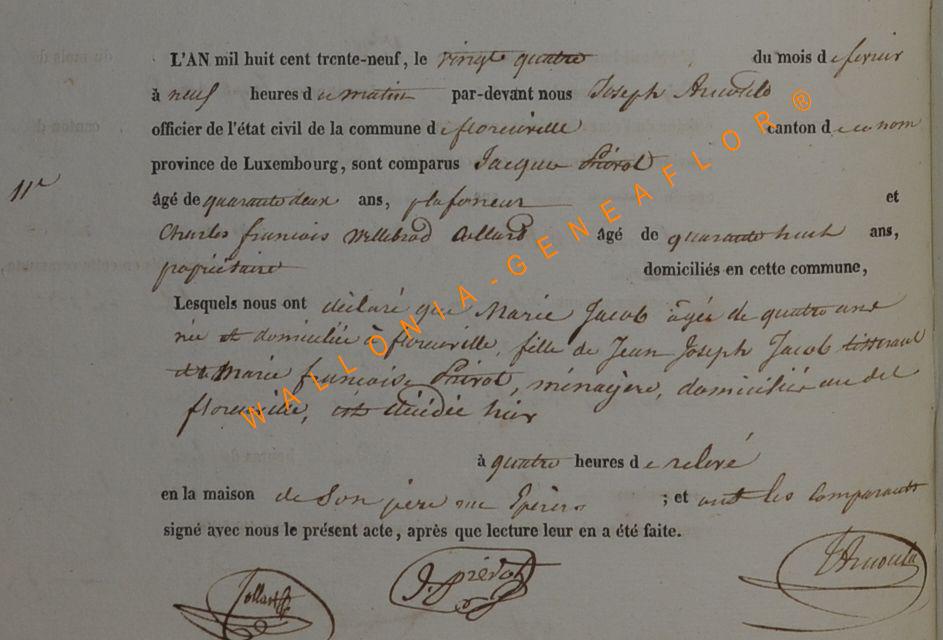 L'AN mil huit cent trente-neuf, le vingt quatre du mois de fevrier
à neuf heures du matin par-devant nous Joseph Arnould
officier de l'état civil de la commune de florenville canton de ce nom
province de Luxembourg, sont comparus Jacques Prévot
11e
âgé de quarante deux ans, plafonneur et
Charles francois Willebrod Collard âgé de quarante huit ans,
propriétaire domiciliés en cette commune,
Lesquels nous ont déclaré que Marie Jacob agée de quatre ans
née et domiciliée à florenville, fille de Jean Joseph Jacob tisserand
et de Marie francoise Prévot, ménagère, domiciliés au dit
florenville, est décédée hier
à quatre heures de relevé
en la maison de son père rue ; et ont les comparants
signé avec nous le présent acte, après que lecture leur en a été faite.
Collard J. Prévot J Arnould
WALLONIA-GENEAFLOR ®